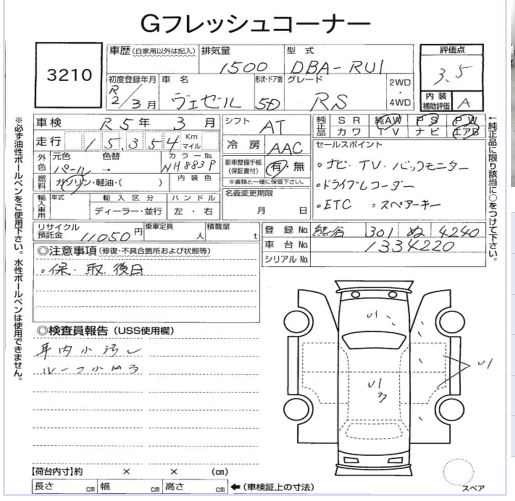 Gフレッシュコーナー
3210
車歴 (自家用以外は記入) 排気量 型式
1500 DBA-RU1
評価点
3.5
初度登録年月 車名 形状・ドア数 グレード
R2/3月 ヴェゼル 5D RS
2WD・4WD
内装補助評価 A
車検 R5年3月 シフト AT
純正品 SR 純AW PS PW
カワ TV ナビ エアB
走行 15,354 Km マイル
外色 元色 色替 カラーNo
パール → NH883P
内色
冷房 AAC
セールスポイント
・ナビ・TV・バックモニター
・ドライブレコーダー
・ETC ・スペアーキー
燃料 ガソリン・軽油・( )
取扱説明書・整備手帳(保証書付) 有・無
※書類と一緒に保管下さい。
輸入車用 年式 輸入区分 ハンドル
ディーラー・並行 左・右
名義変更期限
月 日
リサイクル預託金 11,050円 乗車定員 人 積載量 t
登録No 熊谷 301 ぬ 4240
車台No 1334220
シリアルNo
◎注意事項 (修復・不具合箇所および状態等)
・保、取、後日
◎検査員報告 (USS使用欄)
車内小汚し
ルーフ小凹ラ
U1
U1
U1
【荷台内寸】約 × ×
長さ cm 幅 cm 高さ cm ←(車検証上の寸法)
スペア
※必ず油性ボールペンをご使用下さい。水性ボールペンは使用できません。
←純正品に限り該当に○をつけて下さい。